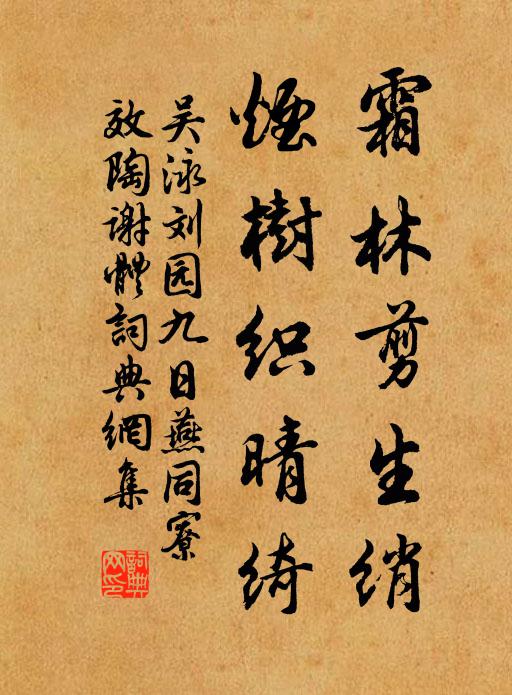 霜林剪生绡
煙樹织晴绮
吴泳刘园九日燕同寮
效陶谢體詞典網集
詞典网印